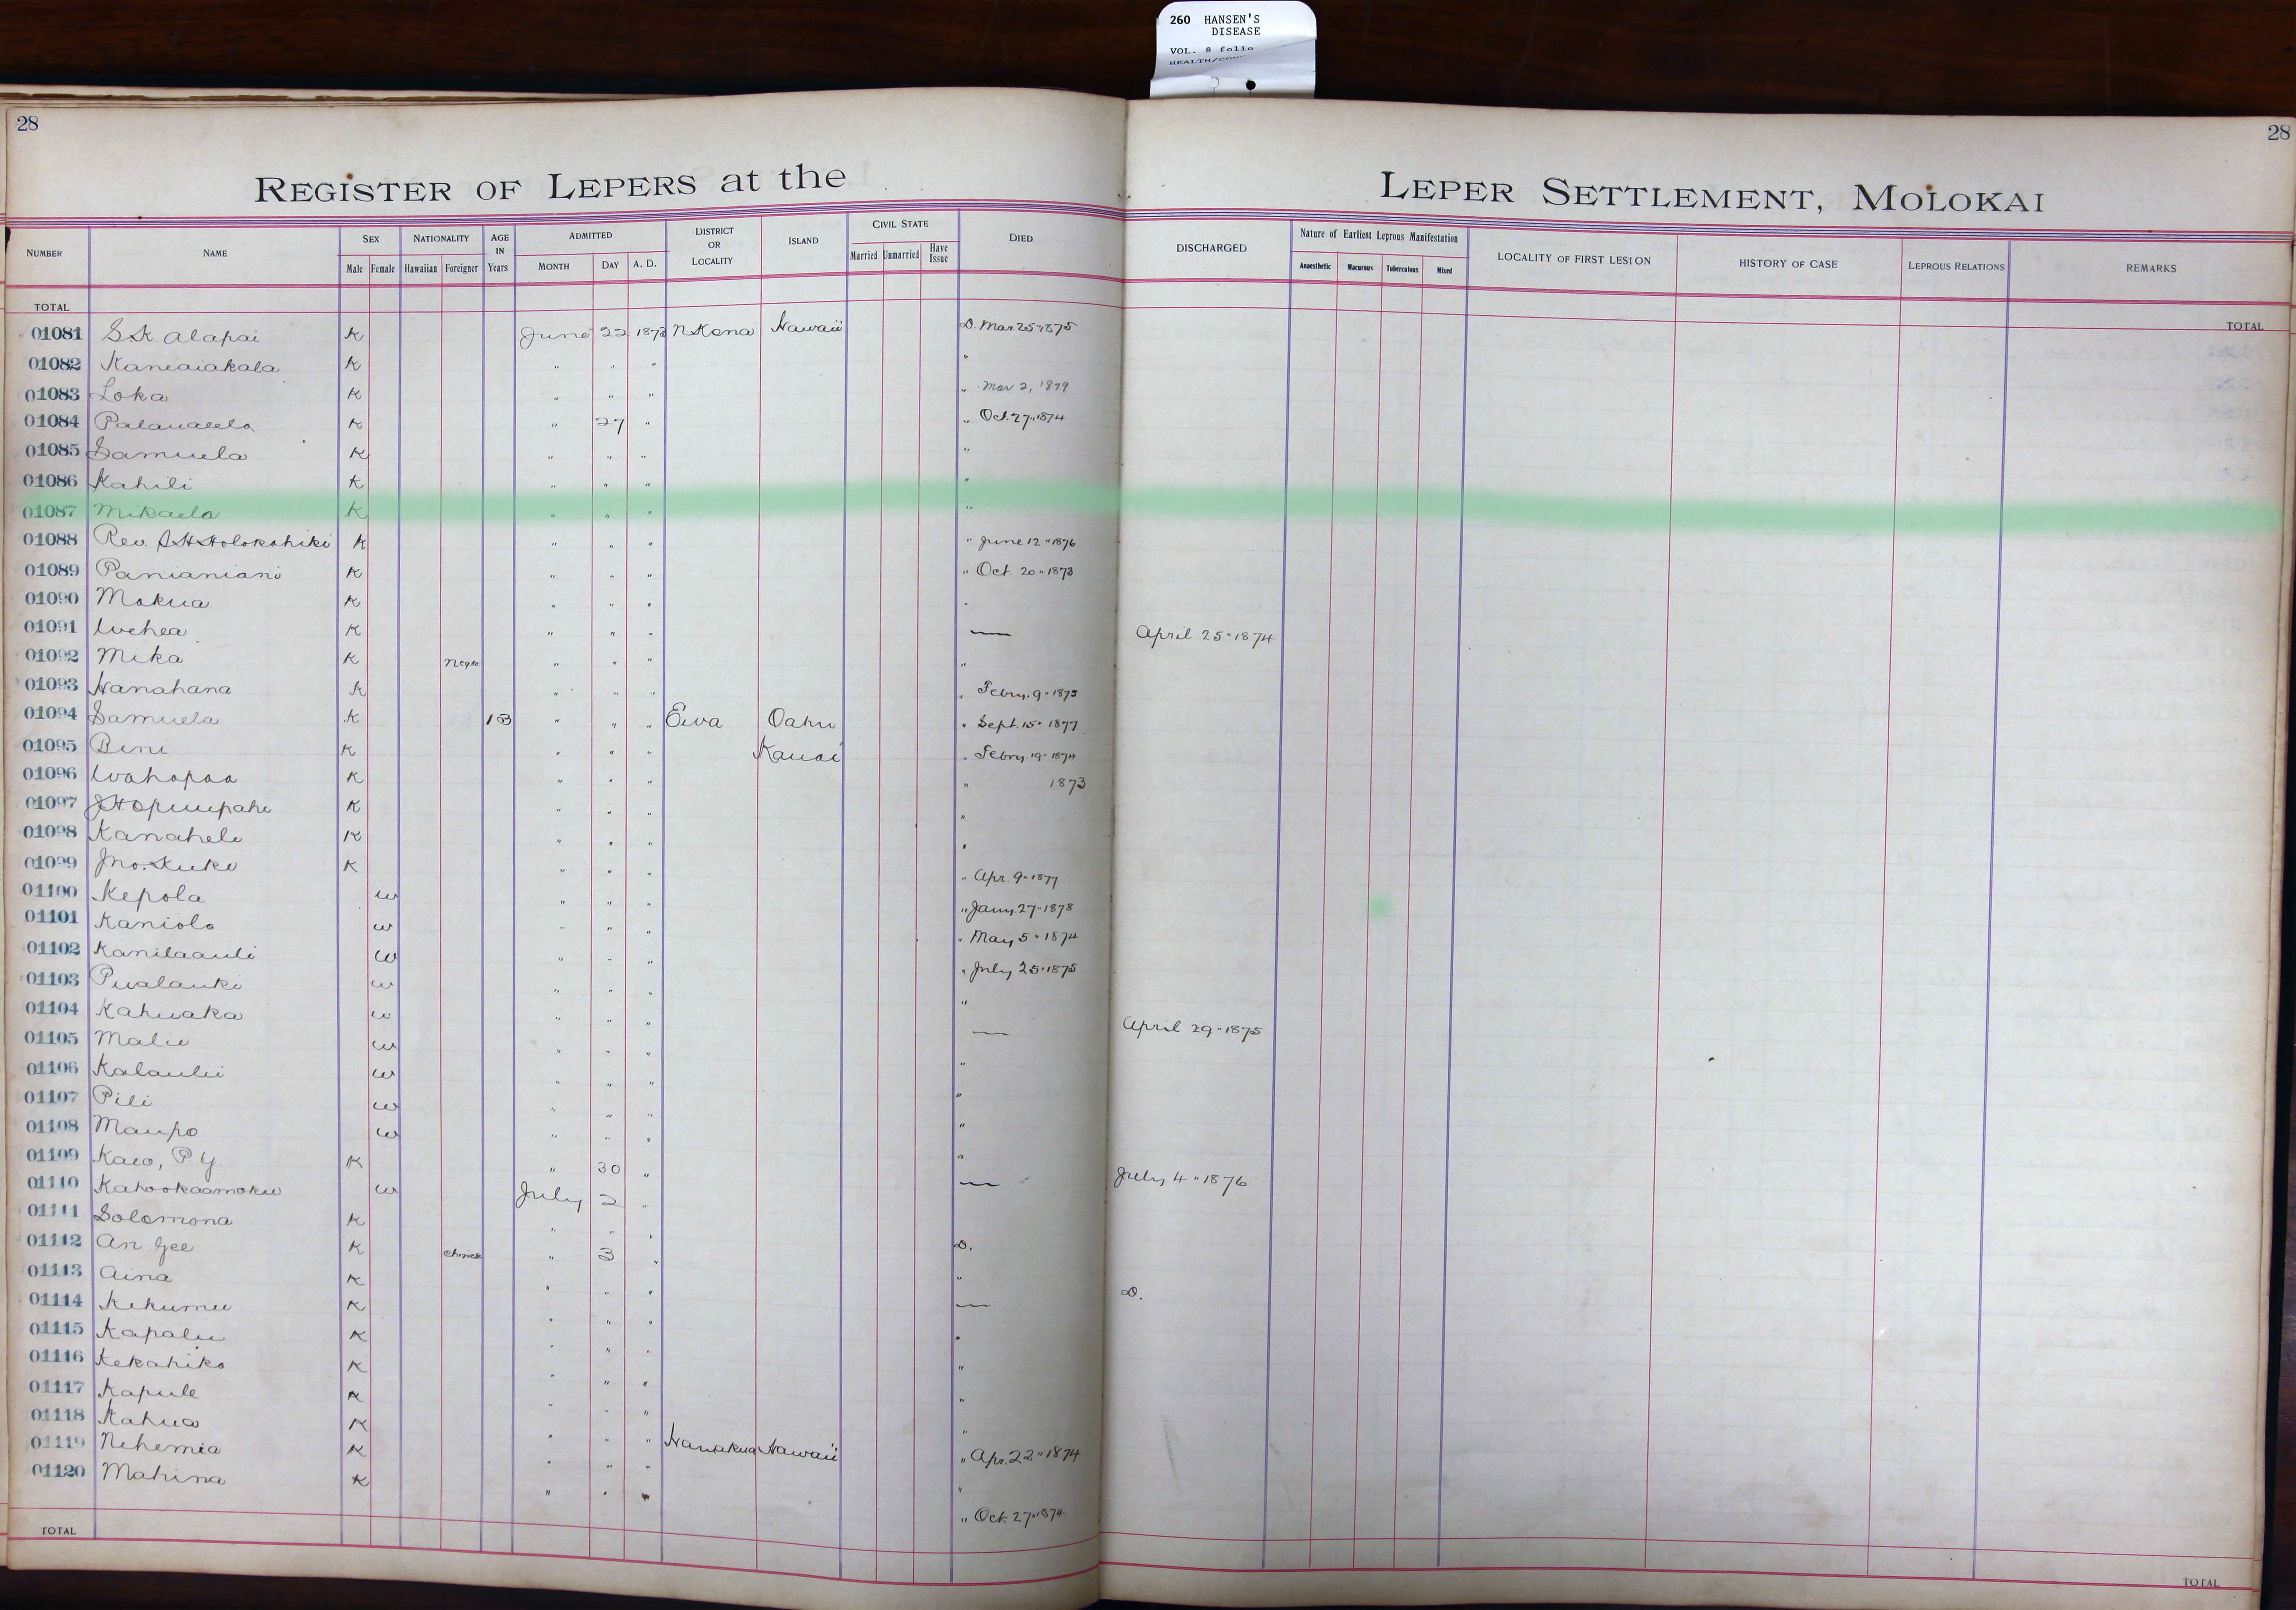 260 HANSEN'S
DISEASE
VOL. 8 folio
28
28
REGISTER OF LEPERS at the LEPER SETTLEMENT, MOLOKAI
NUMBER NAME SEX Male Female NATIONALITY Hawaiian Foreigner AGE IN Years ADMITTED MONTH DAY A. D. DISTRICT OR LOCALITY ISLAND CIVIL STATE Married Unmarried Have Issue DIED DISCHARGED Nature of Earliest Leprous Manifestation Anaesthetic Macurous Tuberculous Mixed LOCALITY OF FIRST LESION HISTORY OF CASE LEPROUS RELATIONS REMARKS
TOTAL TOTAL
01081 S.K. Alapai K June 22 1873 N Kona Hawaii D. Mar. 25 " 1875
01082 Kaneaiakala K " " " "
01083 Loka K " " " " Mar 2, 1879
01084 K " 27 " " Oct. 27 " 1874
01085 Samuela K " " " "
01086 Kahili K " " " "
01087 Mikaela K " " " "
01088 Rev. Holokahiki K " " " " June 12 " 1876
01089 Panianiani K " " " " Oct. 20 " 1873
01090 Mokua K " " " "
01091 Wehea K " " " — April 25 " 1874
01092 Mika K Negro " " " "
01093 Hanahana K " " " " Febry. 9 "
01094 Samuela K 13 " " " Ewa Oahu " Sept. 15 " 1877
01095 Beni K " " " Kauai " Febry 19 " 1874
01096 Wahapaa K " " " " 1873
01097 J.H. K " " " "
01098 Kanahele K " " " "
01099 Jno. Kuke K " " " " Apr. 9 " 1877
01100 Kepola w " " " " Jany. 27 " 1878
01101 Kaniolo w " " " " May 5 " 1874
01102 Kanilaauli w " " " " July 25 " 1875
01103 Pualauki w " " " "
01104 Kahuaka w " " " — April 29 " 1875
01105 Malie w " " " "
01106 Kalaulii w " " " "
01107 Pili w " " " "
01108 Maupo w " " " "
01109 Kaeo, P Y K " 30 " — July 4 " 1876
01110 Kahookaamoku w July 2 "
01111 Solomona K " " "
01112 An Gee K Chinese " 3 " D.
01113 Aina K " " " "
01114 Kekumu K " " " — D.
01115 Kapalu K " " " "
01116 Kekahiko K " " " "
01117 Kapule K " " " "
01118 Kahua K " " " "
01119 Nehemia K " " " Hamakua Hawaii " Apr. 22 " 1874
01120 Mahina K " " " "
" Oct. 27 " 1874
TOTAL TOTAL